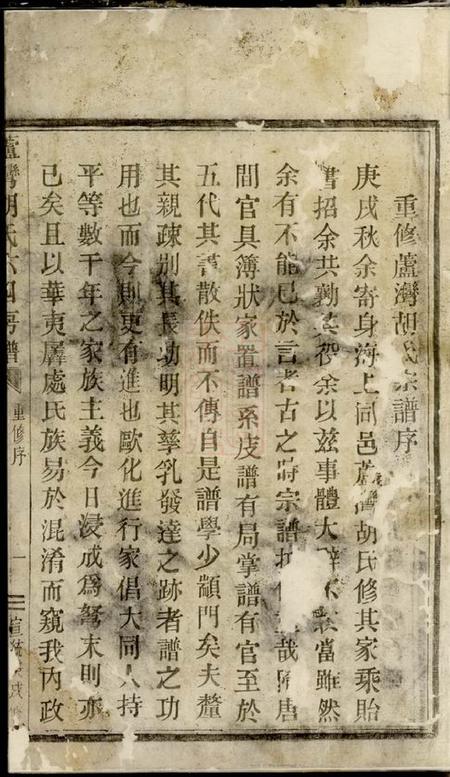 重修蘆灣胡氏宗譜序
庚戌秋余寄身海上同邑蘆灣胡氏修其家乘貽
書招余共勷其役余以茲事體大辭不敢當雖然
余有不能已於言者古之時宗譜哉隋唐
間官具簿狀家置譜系皮譜有局掌譜有官至於
五代其書散佚而不傳自是譜學少顓門矣夫釐
其親疎別其長幼明其孳乳發達之跡者譜之功
用也而今則更有進也歐化進行家倡大同人持
平等數千年之家族主義今日浸成為弩末則亦
已矣且以華夷羼處氏族易於混淆而窺我內政
蘆灣胡氏六四房譜
重修序
一
宣統庚戌